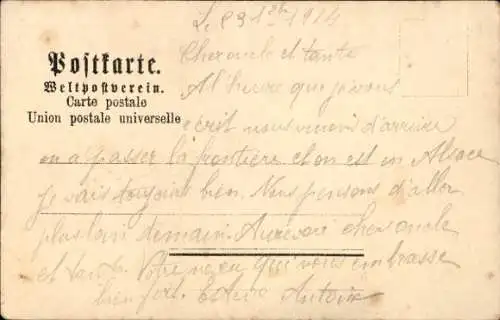 Postkarte.
Weltpostverein.
Carte postale
Union postale universelle
1914
Cher oncle et tante
A l'heure que je vous
ecrit nous venons d'arriver
on a passer la frontière et on est en Alsace
je vais toujours bien. Nous pensons d'aller
plus loin demain. Aurevoir cher oncle
et tante. Votre neveu qui vous embrasse
bien fort. Antoine